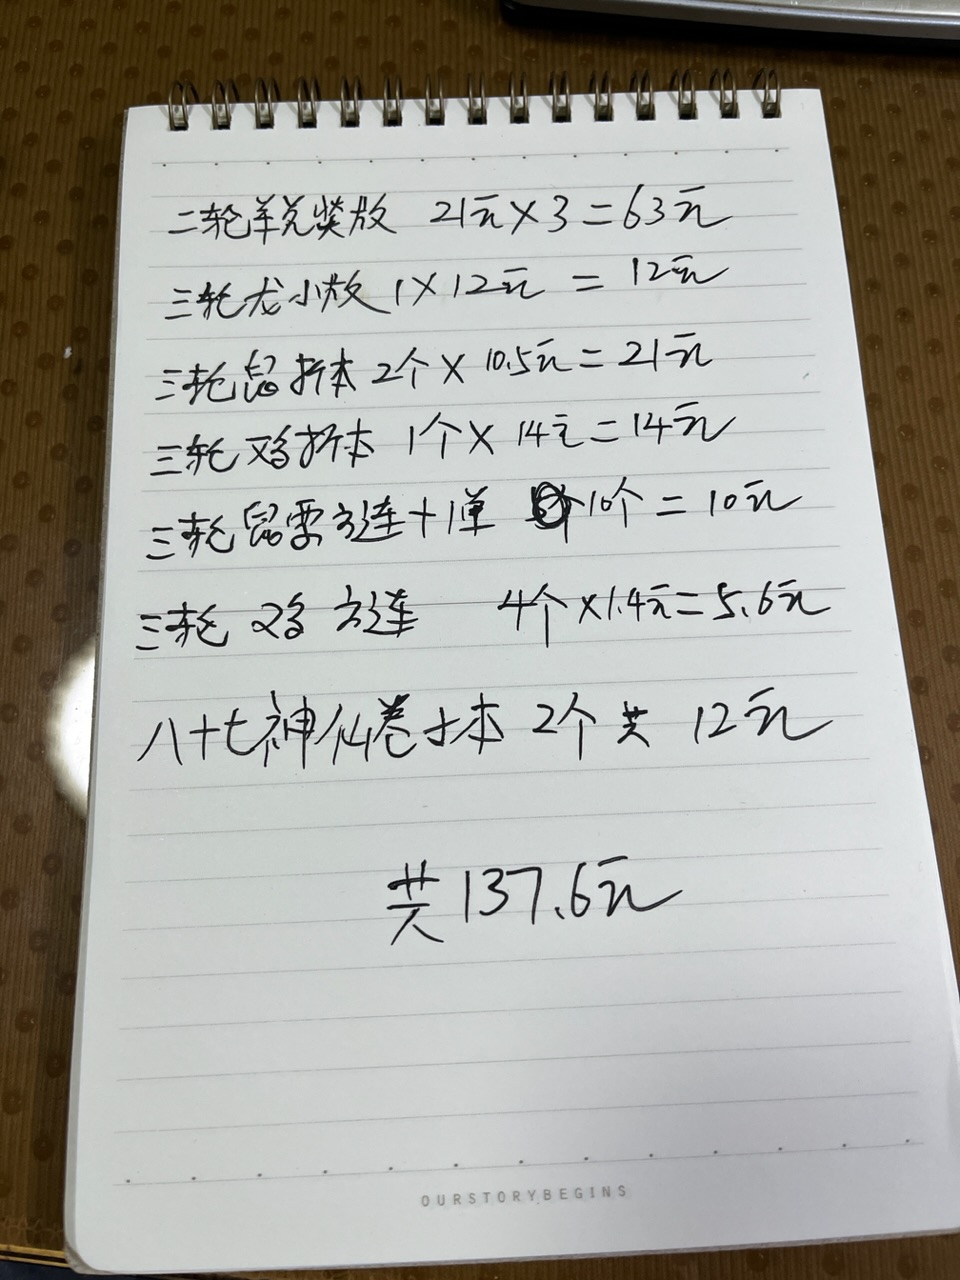 二轮羊兑奖版 21元×3=63元
三轮龙小版 1×12元=12元
三轮鼠折本 2个×10.5元=21元
三轮鸡折本 1个×14元=14元
三轮鼠票方连+1单 10个=10元
三轮 鸡 方连 4个×1.4元=5.6元
八十七神仙卷小本 2个共 12元
共137.6元
OURSTORYBEGINS